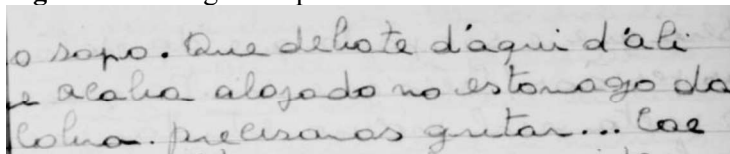 o sapo. Que debate d'aqui d'ali
e acaba alojado no estomago da
Cobra. precisavas gritar... Cae